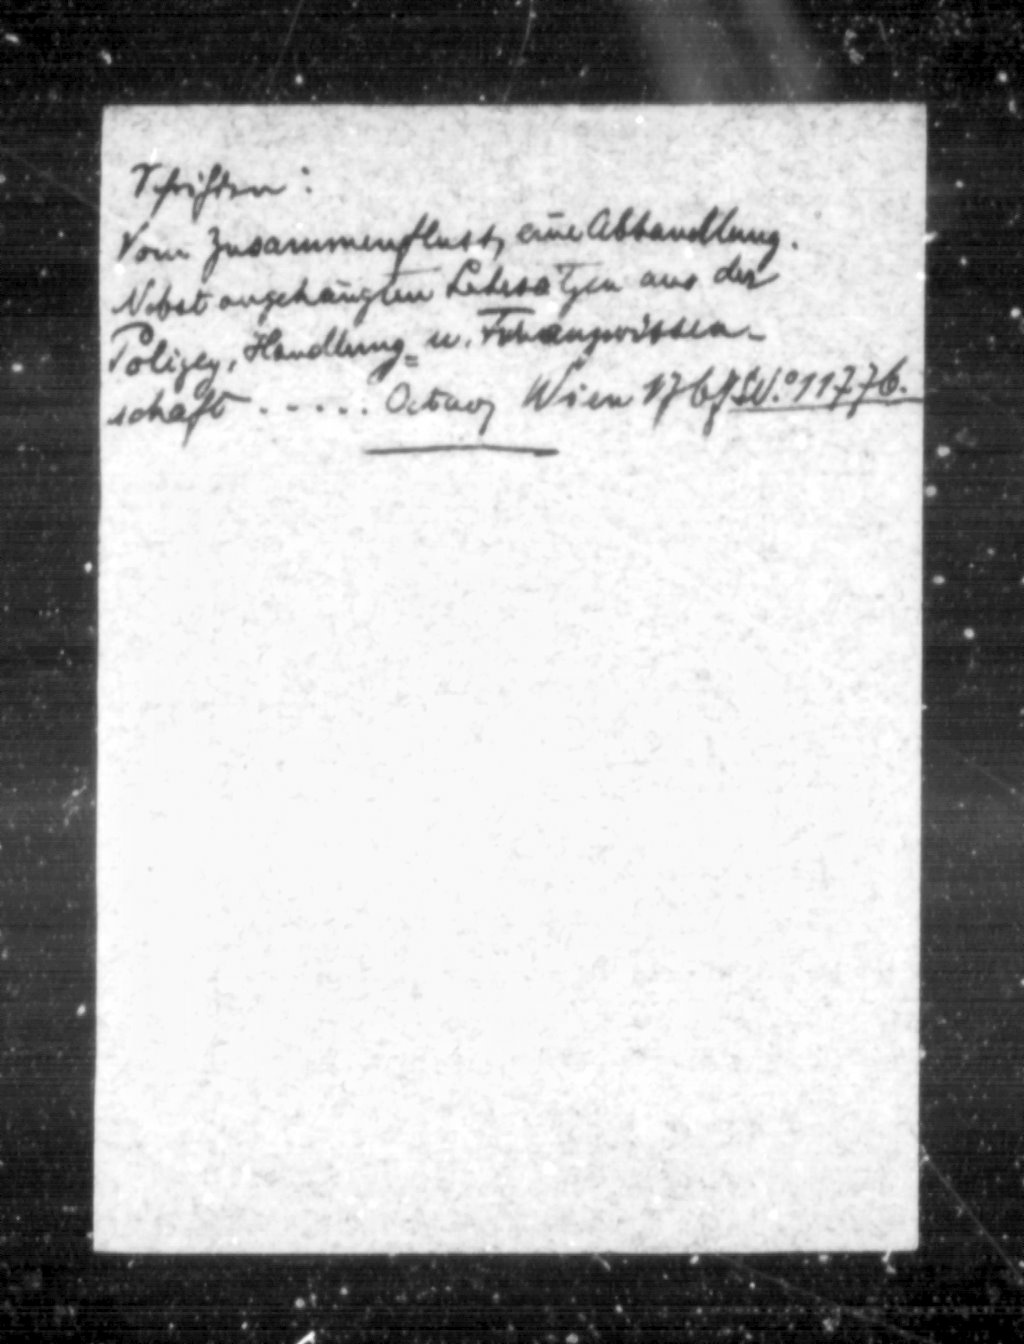 Schriften:
Vom Zusammenfluss, eine Abhandlung.
Nebst angehängten Lehrsätzen aus der
Polizey, Handlung= u. Finanzwissen-
schaft ..... Octav, Wien 1767 N.º 11776.